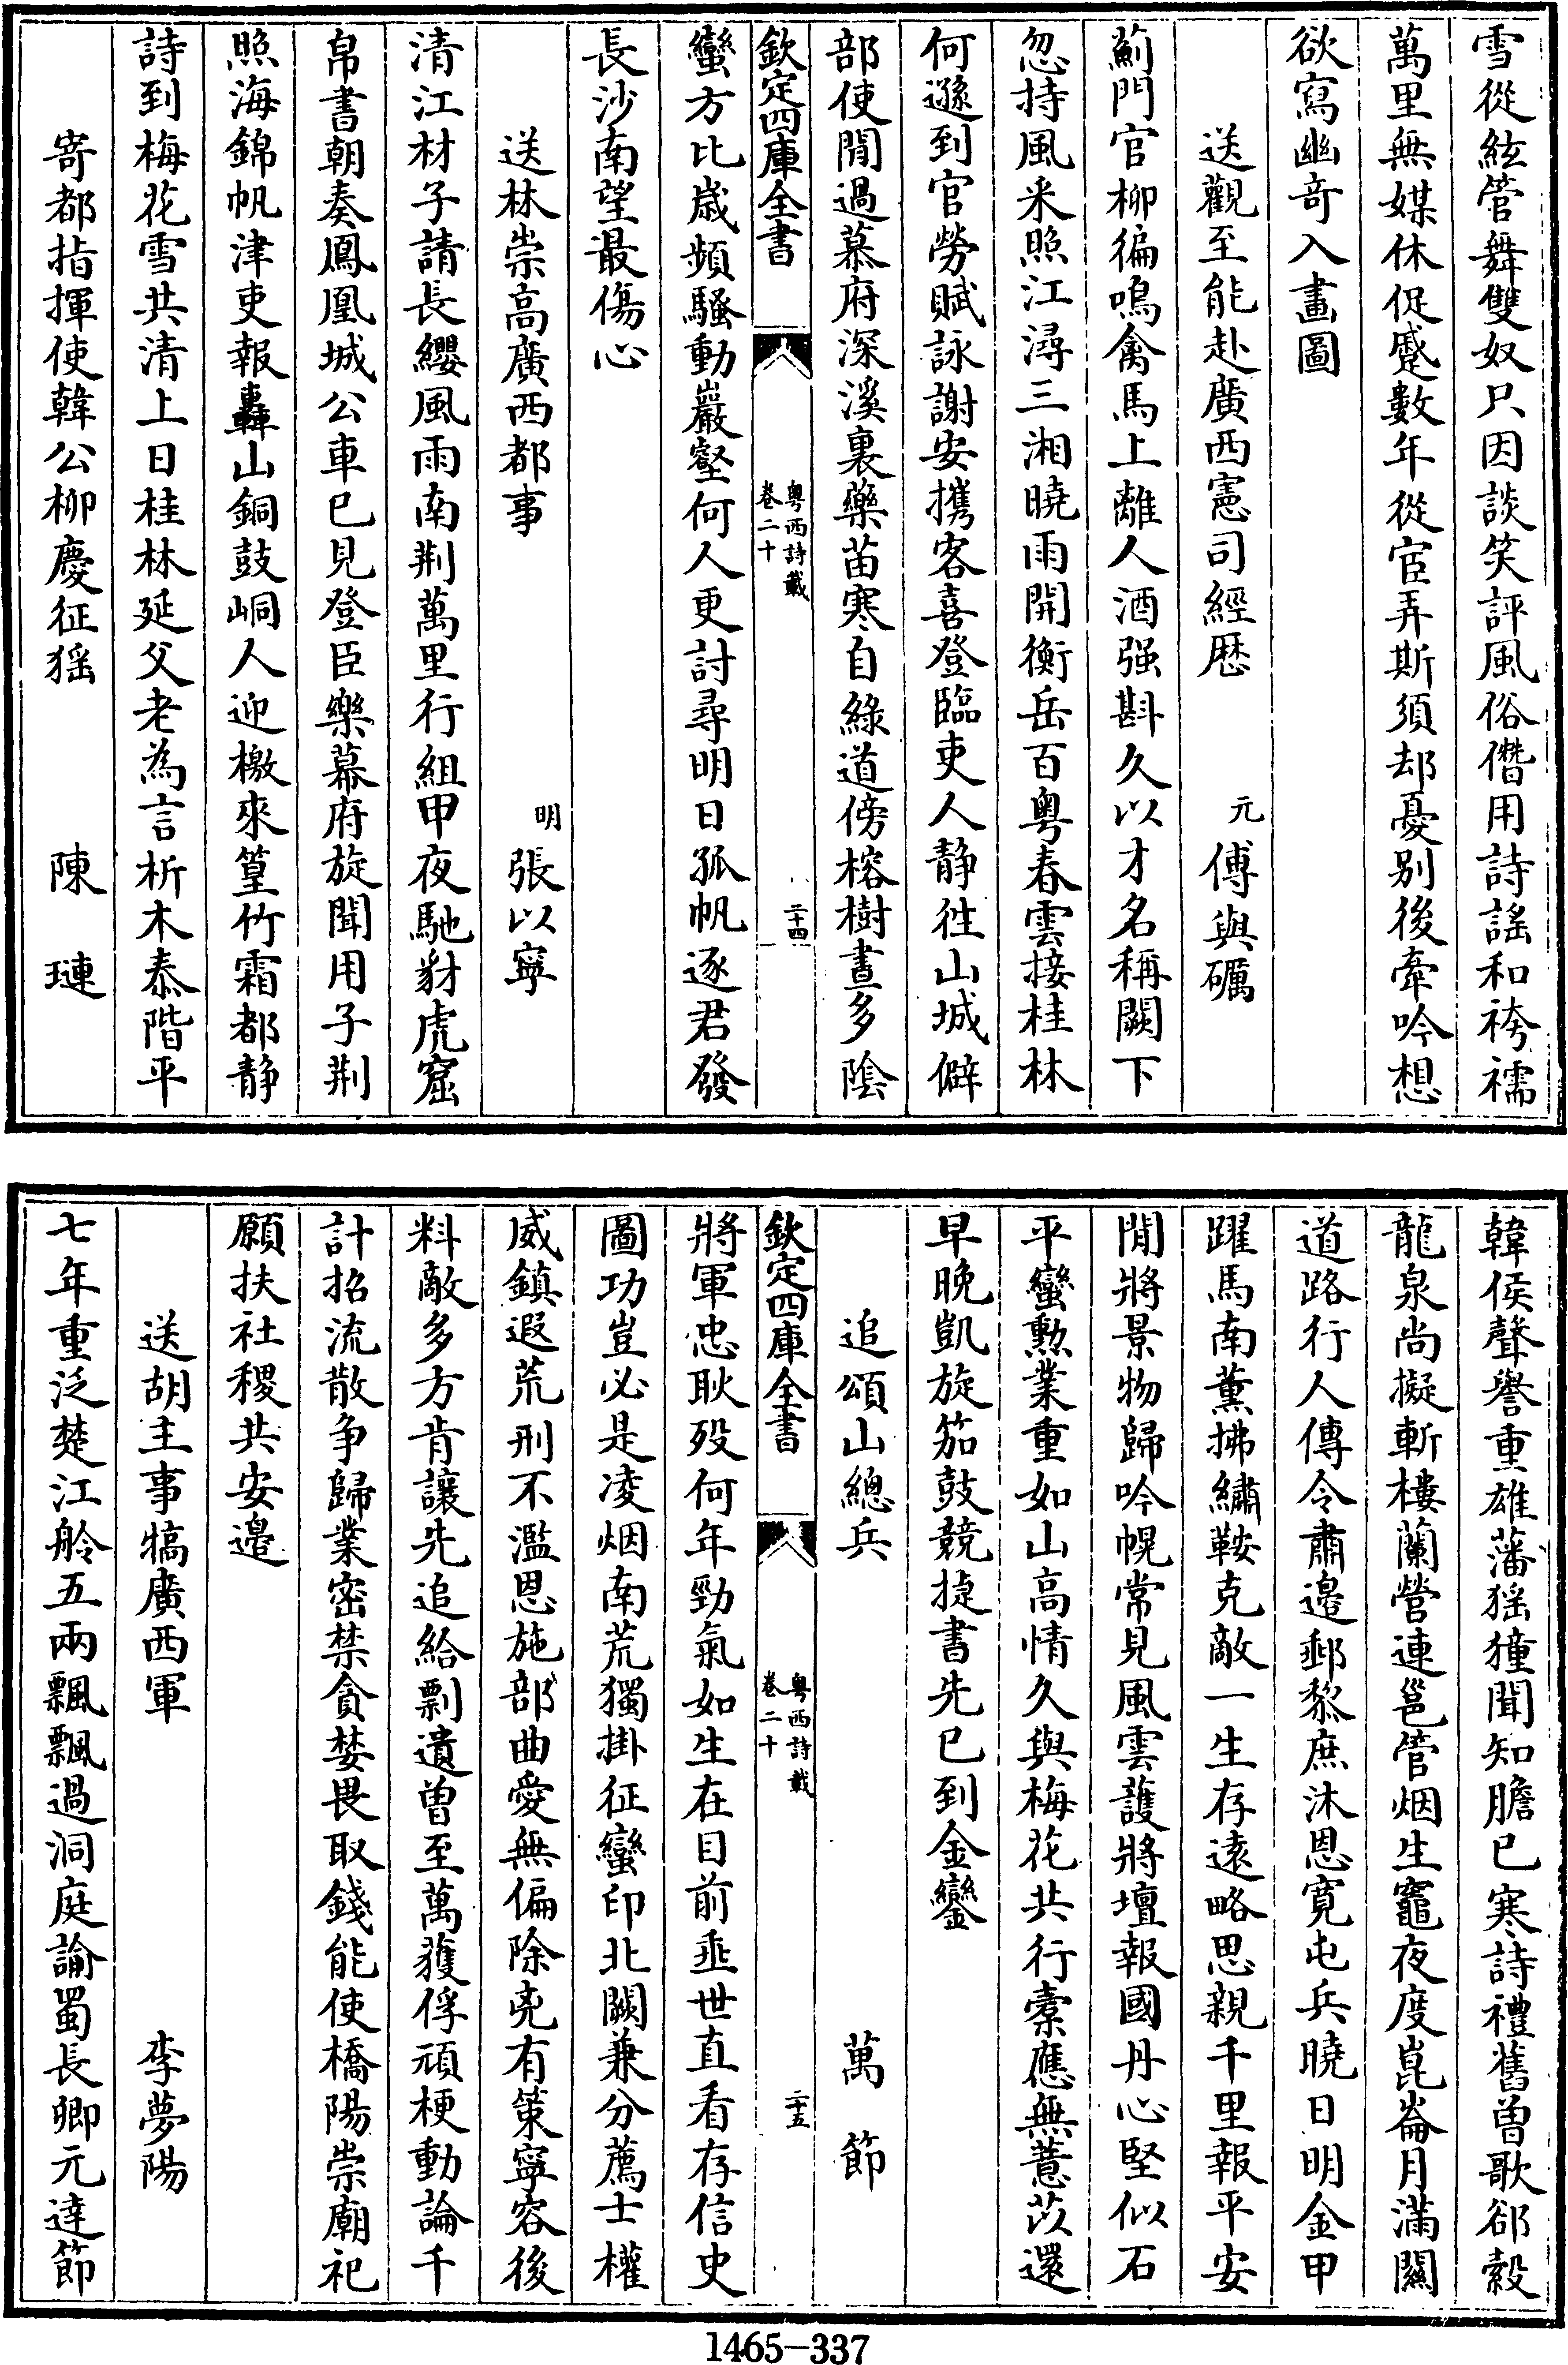 雪從絃管舞雙奴只因談笑評風俗僭用詩謠和袴襦
萬里無媒休促蹙數年從宦弄斯須却憂別後牽吟想
欲寫幽竒入畫圖
送觀至能赴廣西憲司經歴 元 傅與礪
薊門官柳徧鳴禽馬上離人酒强斟久以才名稱闕下
忽持風采照江潯三湘曉雨開衡岳百粤春雲接桂林
何遜到官勞賦詠謝安攜客喜登臨吏人静徃山城僻
部使閒過慕府深溪裏藥苗寒自綠道傍榕樹晝多陰
欽定四庫全書 粤西詩載 卷二十 二十四
蠻方比歲頻騷動巖壑何人更討尋明日孤帆逐君發
長沙南望最傷心
送林崇高廣西都事 明 張以寧
清江材子請長纓風雨南荆萬里行組甲夜馳豺虎窟
帛書朝奏鳳凰城公車已見登臣樂幕府旋聞用子荆
照海錦帆津吏報轟山銅鼓峒人迎檄來篁竹霜都静
詩到梅花雪共清上日桂林延父老為言析木泰階平
寄都指揮使韓公柳慶征猺 陳璉
韓侯聲譽重雄藩猺獞聞知膽已寒詩禮舊曽歌郤縠
龍泉尚擬斬樓蘭營連邕管烟生竈夜度崑崙月滿關
道路行人傳令肅邉郵黎庶沐恩寛屯兵曉日明金甲
躍馬南薰拂繡鞍克敵一生存遠略思親千里報平安
閒將景物歸吟幌常見風雲護將壇報國丹心堅似石
平蠻勲業重如山高情久與梅花共行橐應無薏苡還
早晚凱旋笳鼓競捷書先已到金鑾
追頌山總兵 萬節
欽定四庫全書 粤西詩載 卷二十 二十五
將軍忠耿殁何年勁氣如生在目前垂世直看存信史
圖功豈必是凌烟南荒獨掛征蠻印北闕兼分薦士權
威鎮遐荒刑不濫恩施部曲愛無偏除兇有策寧容後
料敵多方肯讓先追給剽遺曽至萬獲俘頑梗動論千
計招流散爭歸業密禁貪婪畏取錢能使橋陽崇廟祀
願扶社稷共安邉
送胡主事犒廣西軍 李夢陽
七年重泛楚江舲五兩飄飄過洞庭諭蜀長卿元達節
1465-337